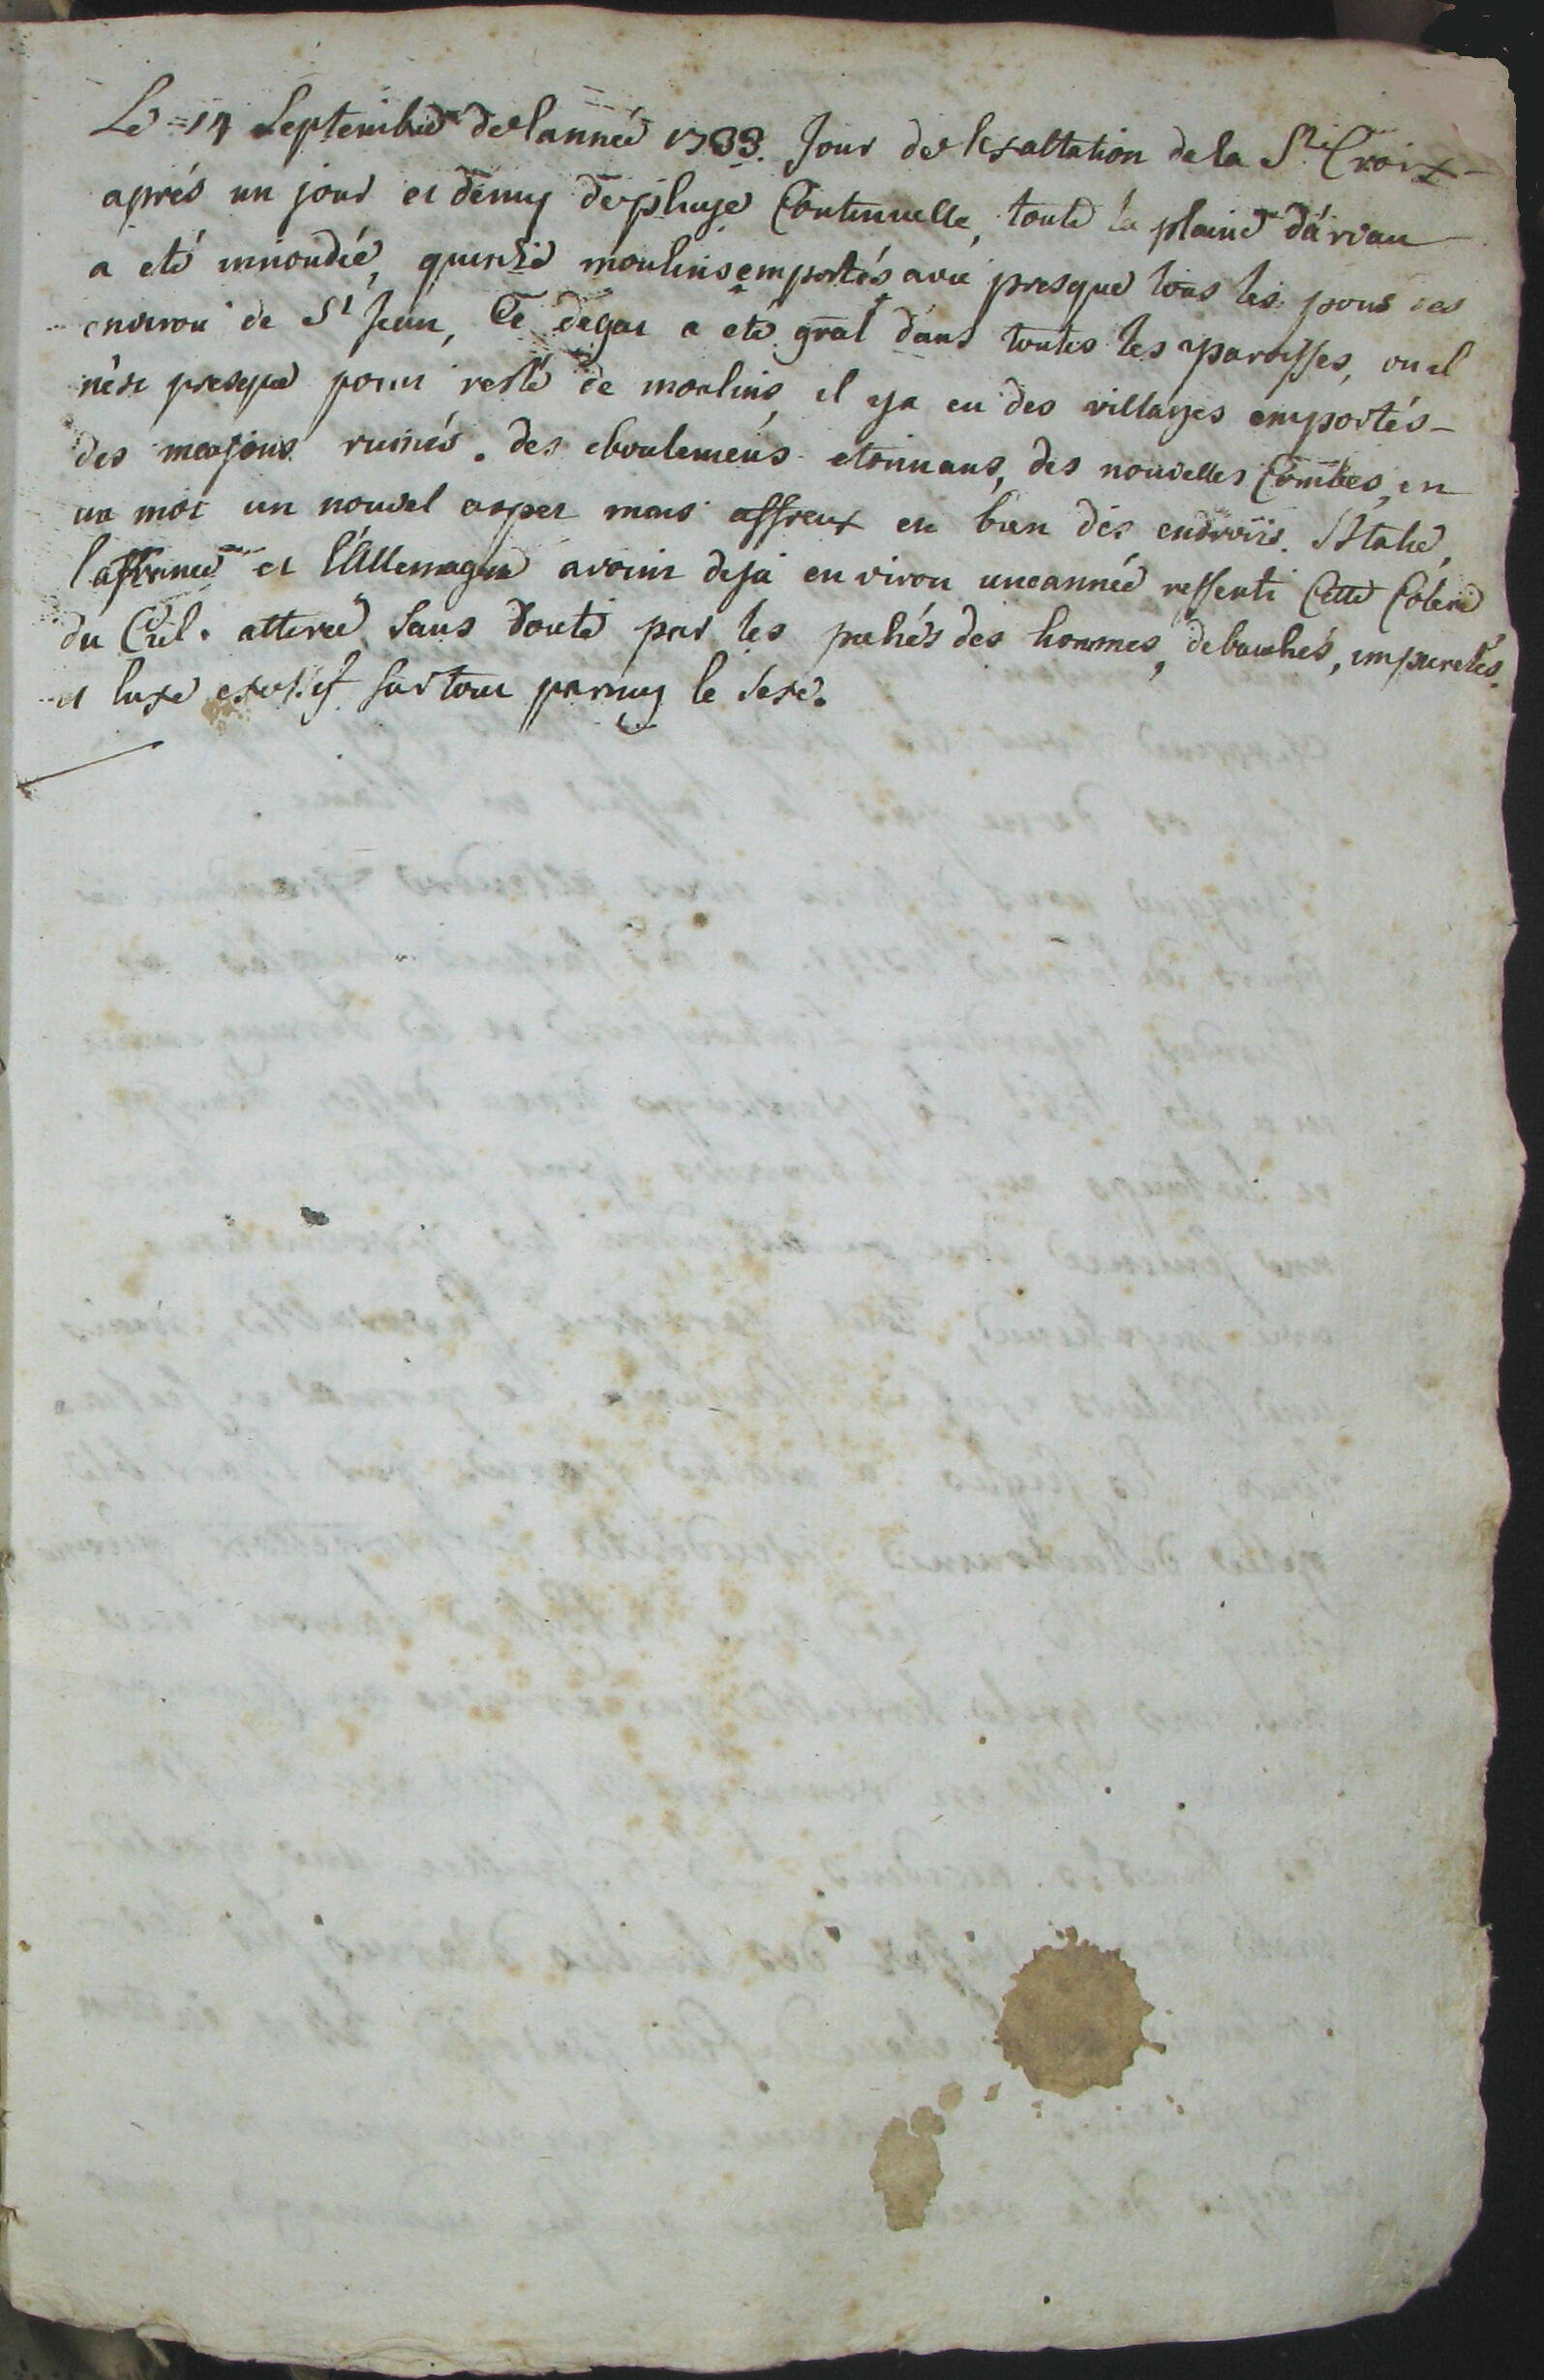 Le 14 Septembre de lannée 1733. Jour de lexaltation de la Ste Croix
aprés un jour et demy de pluye Continuelle, toute la plaine dárvan
a eté innondée, quinze moulins emportés avec presque tous les pons des
environ de St Jean, Ce degat a eté gral dans toutes les paroisses, ou il
nést presque point resté de moulins, il y a eu des villages emportés
des maisons ruinés. des eboulemens etonnans, des nouvelles Combes, en
un mot un nouvel aspet mais affreux en bien des endroits. Litalie,
la france et lAllemagne avoint deja environ uneannée ressenti Cette Colere
du Ciel. attirée sans doute par les pechés des hommes, debauches, impuretés.
et luxe excessif surtout parmy le sexe.